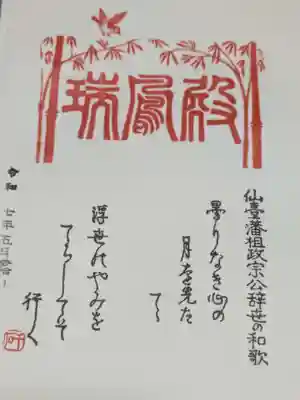 瑞鳳殿
仙臺藩祖政宗公辞世の和歌
曇りなき心の
月を先た
てゝ
浮世のやみを
てらしてそ
行く
令和 七年 五月